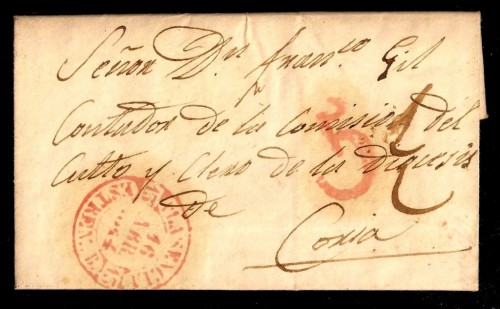 Señor Dn. Franco. Gil
Contador de la Comision del
Culto y Clero de la Diocesis
de
Coria
16
ABR